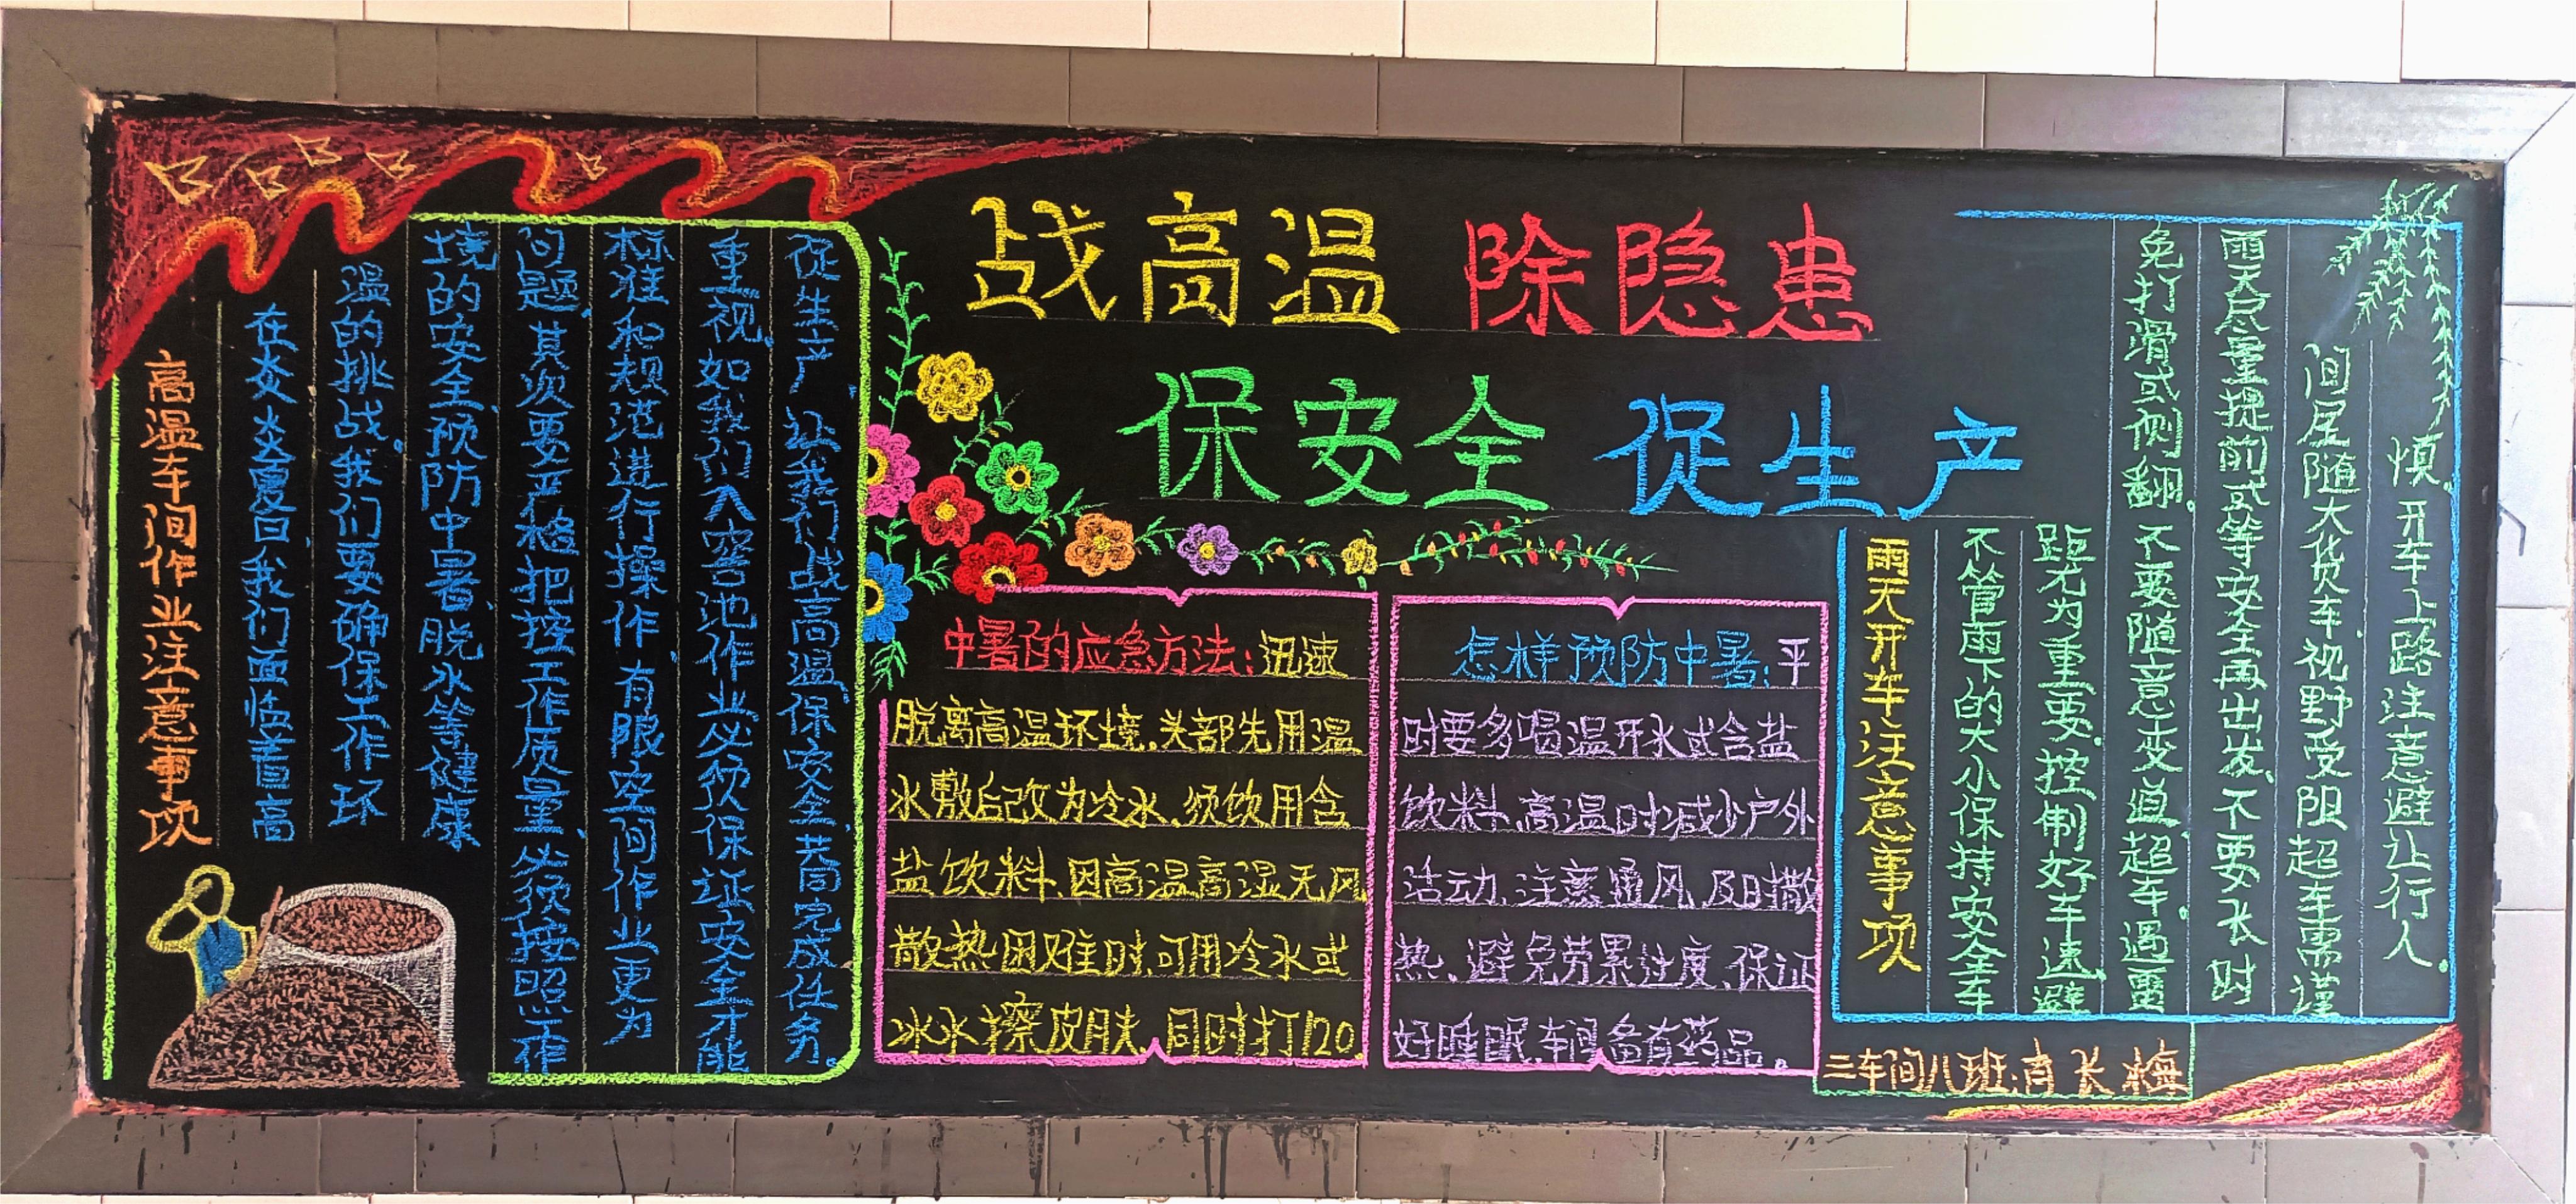 战高温 除隐患
保安全 促生产
高温车间作业注意事项
在炎炎夏日,我们面临着高
温的挑战。我们要确保工作环
境的安全,预防中暑、脱水等健康
问题.其次要严格把控工作质量、必须按照工作
标准和规范进行操作,有限空间作业更为
重视.如我们入窖池作业必须保证安全才能
促生产,让我们战高温,保安全,共同完成任务。
中暑的应急方法:迅速
脱离高温环境,头部先用温
水敷后改为冷水.须饮用含
盐饮料.因高温高湿无风
散热困难时,可用冷水或
冰水擦皮肤、同时打120.
怎样预防中暑:平
时要多喝温开水或含盐
饮料、高温时减少户外
活动,注意通风,及时散
热、避免劳累过度、保证
好睡眠.车间备有药品。
雨天开车注意事项
不管雨下的大小保持安全车
距尤为重要.控制好车速.避
免打滑或侧翻.不要随意变道超车.遇雷
雨天尽量提前或等安全再出发.不要长时
间尾随大货车.视野受阻超车需谨
慎.开车上路注意避让行人.
三车间八班:肖长梅